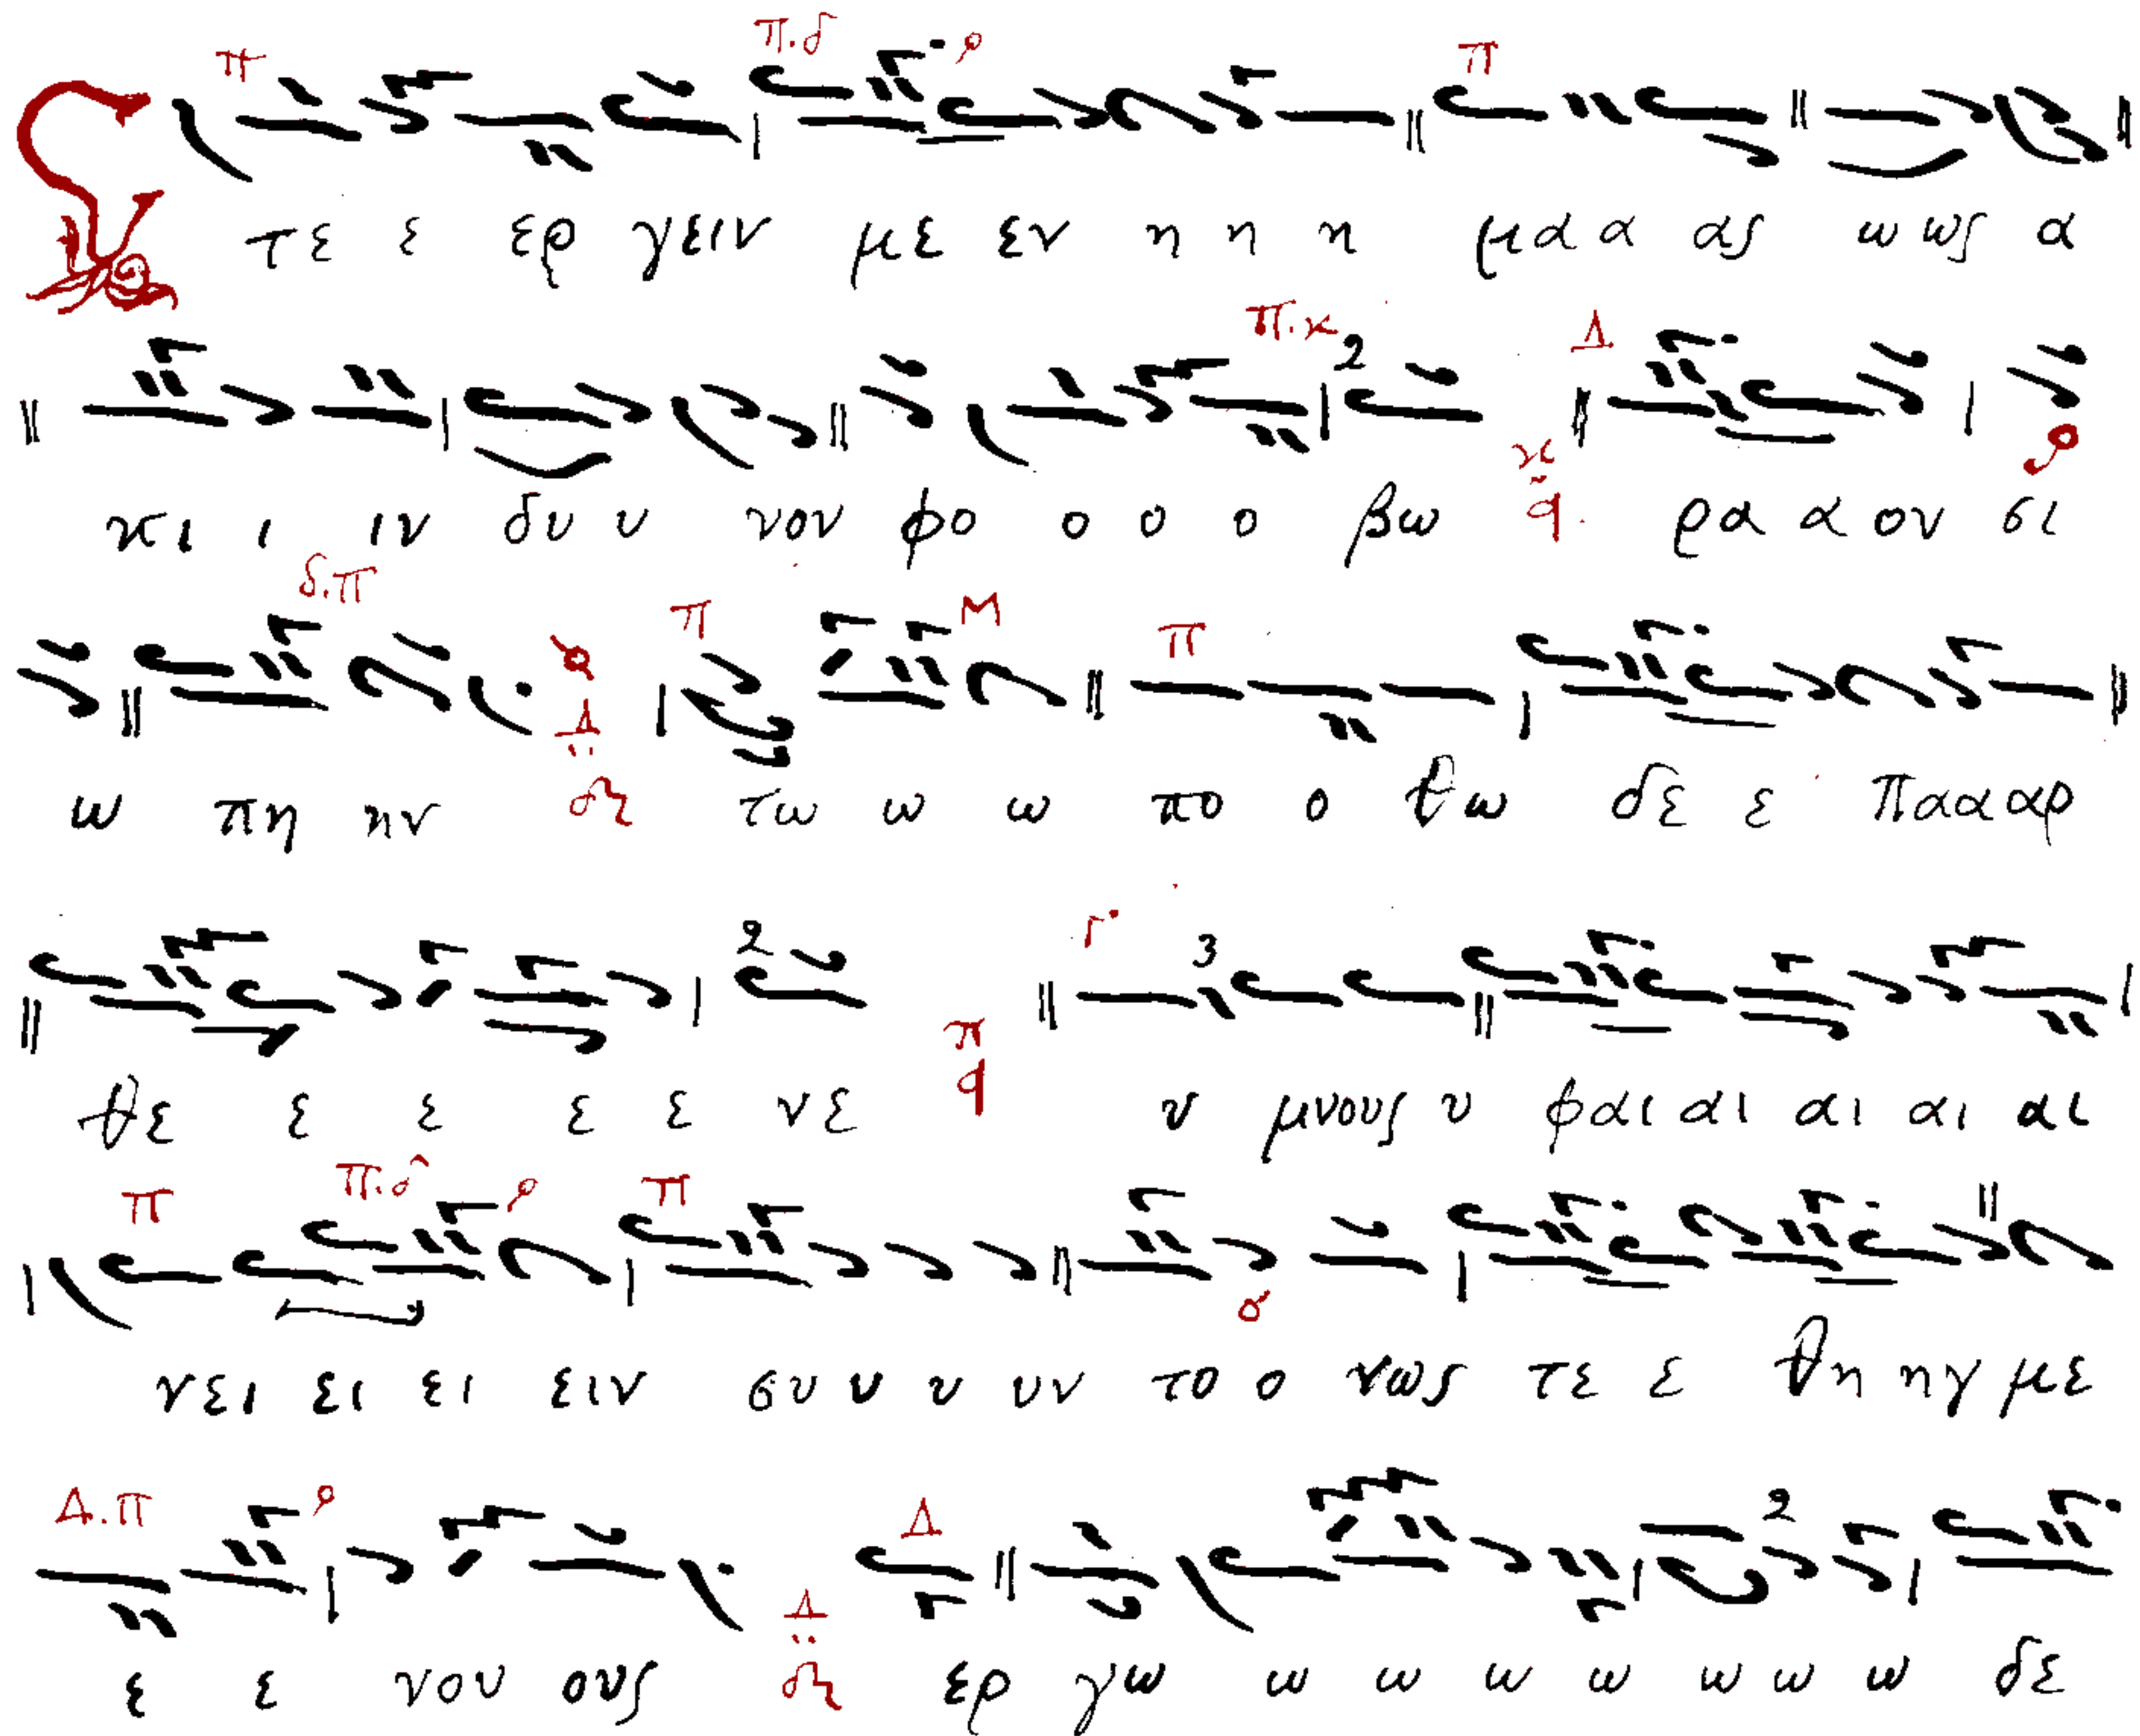 Σ τε ε ερ γειν με εν η η η μα α ας ω ως α
κι ι ιν δυ υ νον φο ο ο ο βω ρα α ον σι
ω πη ην τω ω ω πο ο θω δε ε πα α αρ
θε ε ε ε ε νε υ μνους υ φαι αι αι αι αι
νει ει ει ειν συ υ υ υν το ο νως τε ε θη ηγ με
ε ε νου ους ερ γω ω ω ω ω ω ω ω δε